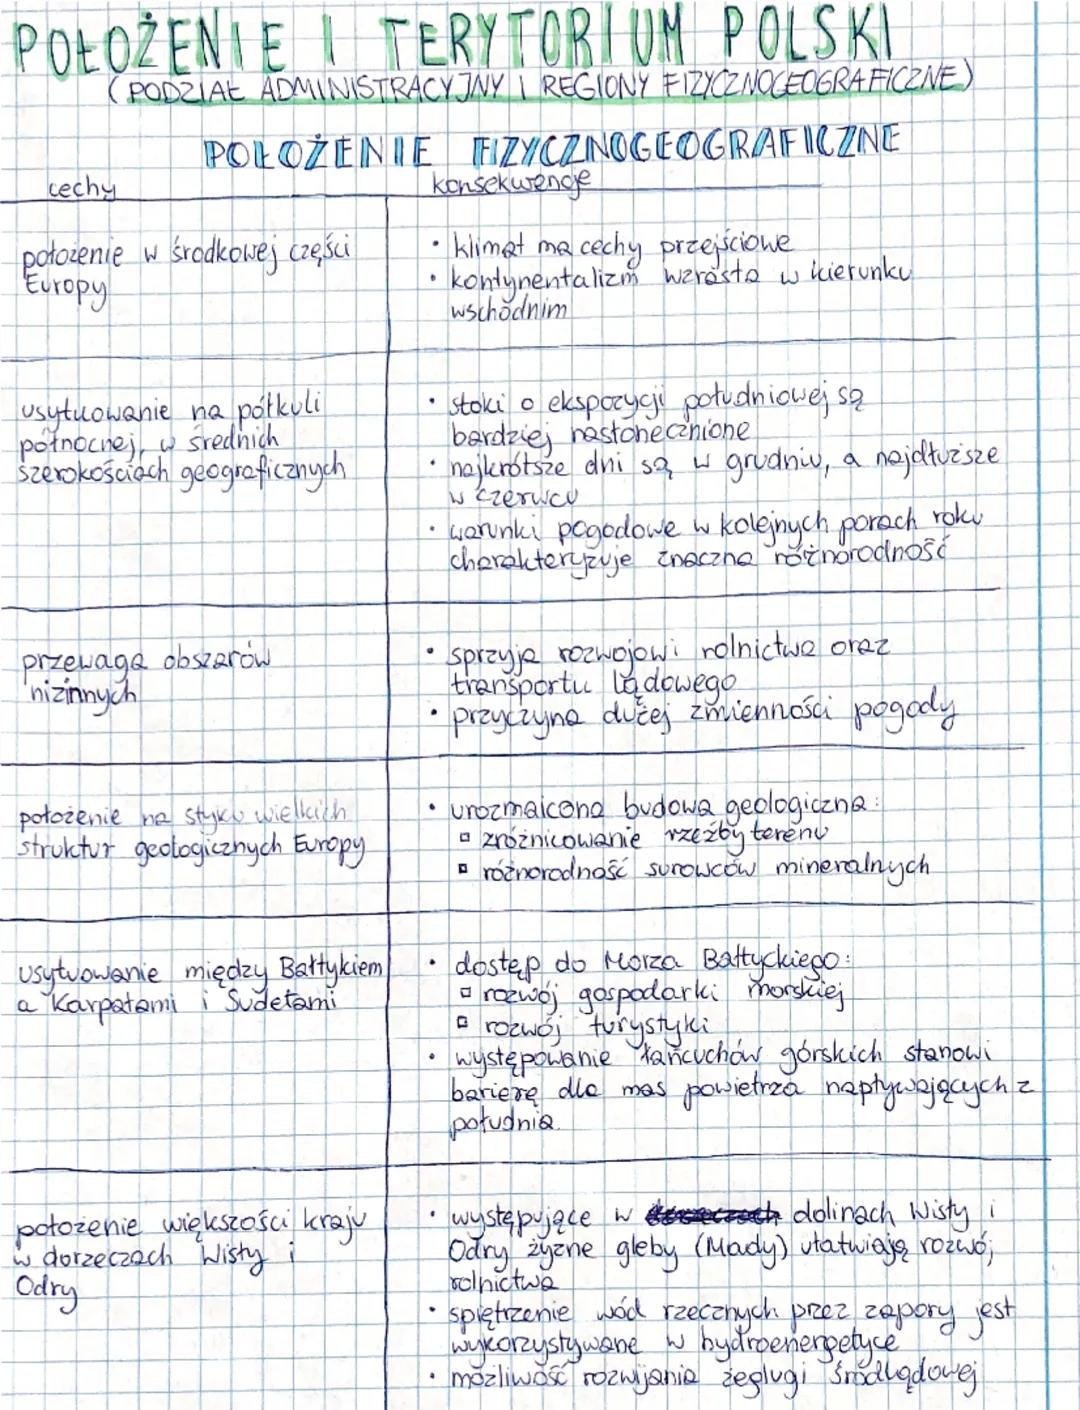 POŁOŻENIE I TERYTORIUM POLSKI
(PODZIAŁ ADMINISTRACYJNY I REGIONY FIZYCZNOGEOGRAFICZNE)
POŁOŻENIE FIZYCZNOGEOGRAFICZNE
cechy
konsekwencje
położenie w środkowej części
Europy
• klimat ma cechy przejściowe
• kontynentalizm wzrasta w kierunku
wschodnim
usytuowanie na półkuli
północnej, w średnich
szerokościach geograficznych
• stoki o ekspozycji południowej są
bardziej nasłonecznione
• najkrótsze dni są w grudniu, a najdłuższe
w czerwcu
• warunki pogodowe w kolejnych porach roku
charakteryzuje znaczna różnorodność
przewaga obszarów
nizinnych
• sprzyja rozwojowi rolnictwa oraz
transportu lądowego
• przyczyna dużej zmienności pogody
położenie na styku wielkich
struktur geologicznych Europy
• urozmaicona budowa geologiczna:
▫ zróżnicowanie rzeźby terenu
▫ różnorodność surowców mineralnych
usytuowanie między Bałtykiem
a Karpatami i Sudetami
• dostęp do Morza Bałtyckiego:
▫ rozwój gospodarki morskiej
▫ rozwój turystyki
• występowanie łańcuchów górskich stanowi
barierę dla mas powietrza napływających z
południa.
położenie większości kraju
w dorzeczach Wisły i
Odry
• występujące w dolinach Wisły i
Odry żyzne gleby (Mady) ułatwiają rozwój
rolnictwa
• spiętrzenie wód rzecznych przez zapory jest
wykorzystywane w hydroenergetyce
• możliwość rozwijania żeglugi śródlądowej